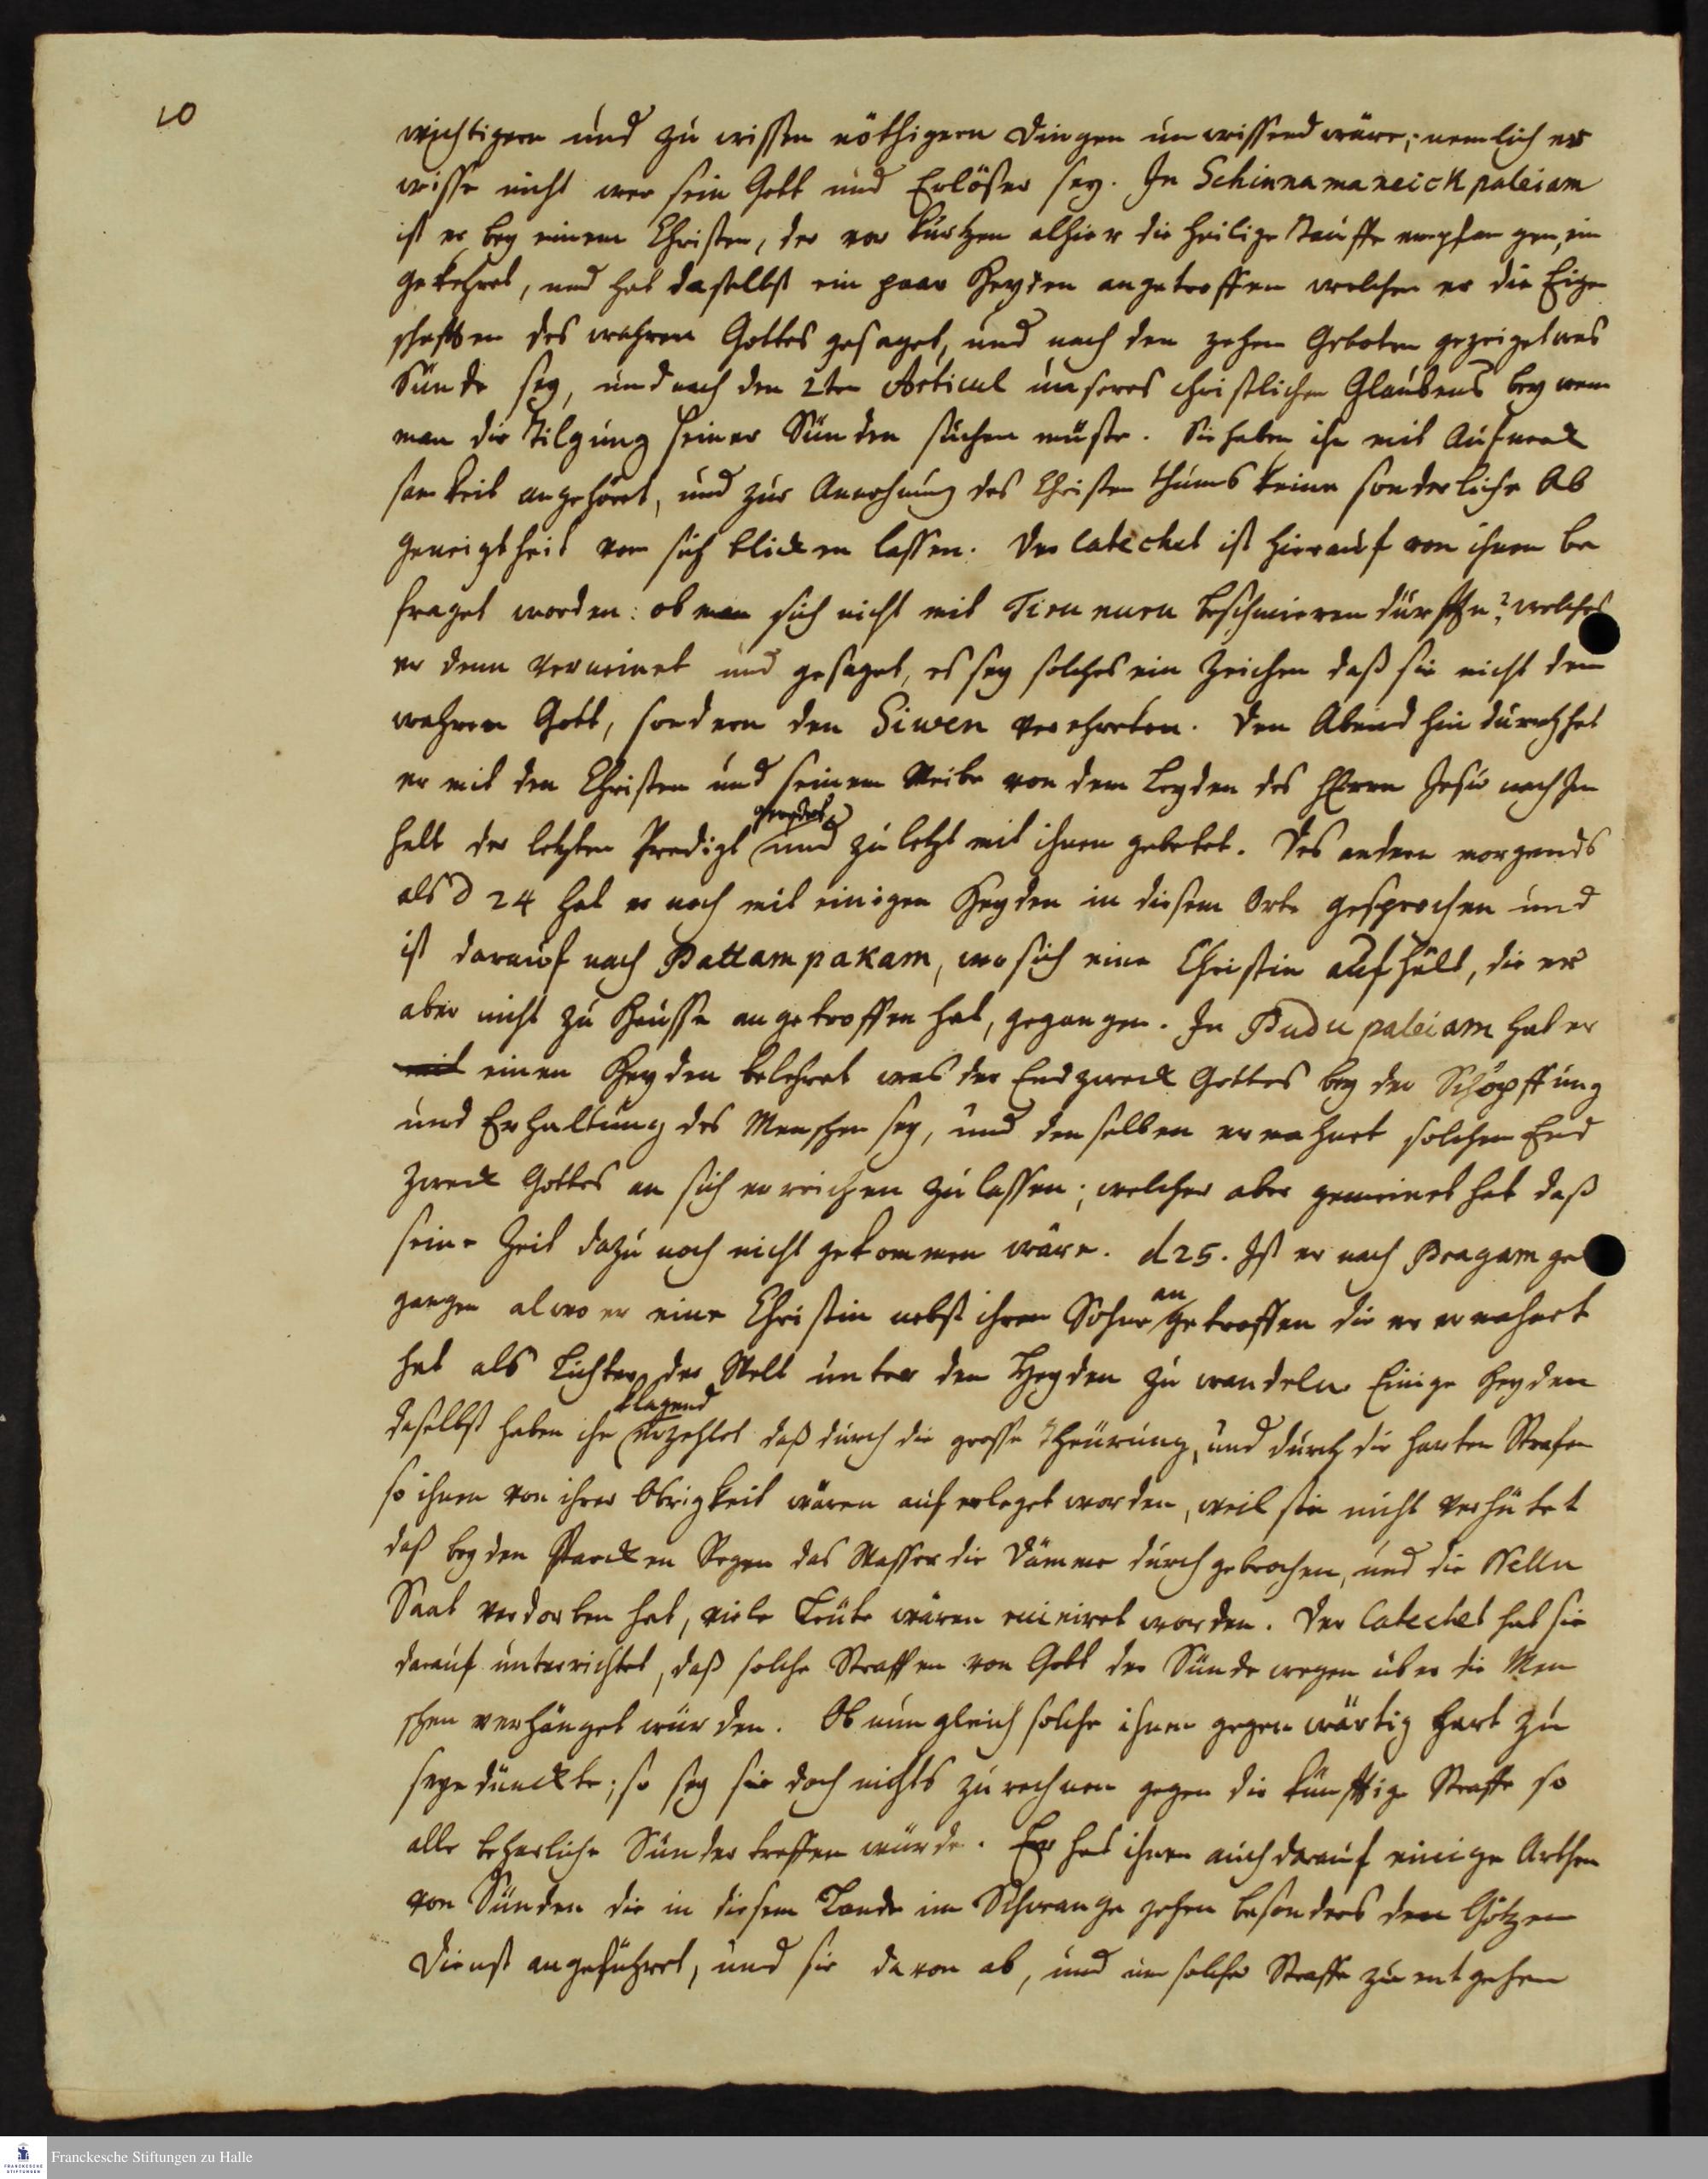 10
wichtigern und zu wissen nöthigern Dingen unwissend wäre; nemlich er
wisse nicht wer sein Gott und Erlöser sey. In Schinnamaneickpaleiam
ist er bey einem Christen, der vor kurtzen alhier die heilige Tauffe empfangen, ein
gekehret, und hat daselbst ein paar Heyden angetroffen welchen er die Eigen
schafften des wahren Gottes gesaget, und nach den zehen Geboten gezeiget was
Sünde sey, und nach den 2ten Articul unseres christlichen Glaubens bey wem
man die Tilgung seiner Sünden suchen müste. Sie haben ihn mit Aufmerck
samkeit angehöret, und zur Annehmung des Christenthums keine sonderliche Ab
geneigtheit von sich blicken lassen. Der Catechet ist hierauf von ihnen be
fraget worden: ob man sich nicht mit Tirunuru beschmieren dürffte? welches
er denn verneinet und gesaget, es sey solches ein Zeichen daß sie nicht den
wahren Gott, sondern den Siwen verehreten. Den Abend hindurch hat
er mit den Christen und seinem Weibe von dem Leyden des HErrn Jesu nach In
geredet
halt der letzten Predigt und zuletzt mit ihnen gebetet. Des andern morgends
als d 24 hat er noch mit einigen Heyden in diesem Orte gesprochen und
ist darauf nach Pattampakam, wo sich eine Christin aufhält, die er
aber nicht zu Hausse angetroffen hat, gegangen. In Pudupaleiam hat er
mit einen Heyden belehret was der Endzweck Gottes bey der Schöpffung
und Erhaltung des Menschen sey, und denselben ermahnet solchen End
zweck Gottes an sich erreichen zu lassen; welcher aber gemeinet hat daß
seine Zeit dazu noch nicht gekommen wäre. d 25. Ist er nach Pragam ge
an
gangen alwo er eine Christin nebst ihren Sohne getroffen die er ermahnet
hat als Lichter der Welt unter den Heyden zu wandeln Einige Heyden
klagend
daselbst haben ihn erzehlet daß durch die grosse Theurung, und durch die harten Strafen
so ihnen von ihrer Obrigkeit wären auferleget worden, weil sie nicht verhütet
daß bey den starcken Regen das Wasser die Dämme durchgebrochen, und die Nellu
Saat verdorben hat, viele Leute wären ruiniret worden. Der Catechet hat sie
darauf unterrichtet, daß solche Straffen von Gott der Sünde wegen über die Men
schen verhänget würden. Ob nun gleich solche ihnen gegenwärtig hart zu
seyn dünckte; so sey sie doch nichts zu rechnen gegen die künfftige Straffe so
alle beharliche Sünder treffen würde. Er hat ihnen auch darauf einige Arthen
von Sünden die in diesem Lande im Schwange gehen besonders den Götzen
Dienst angeführet, und sie davon ab, und um solche Straffe zu entgehen
Franckesche Stiftungen zu Halle